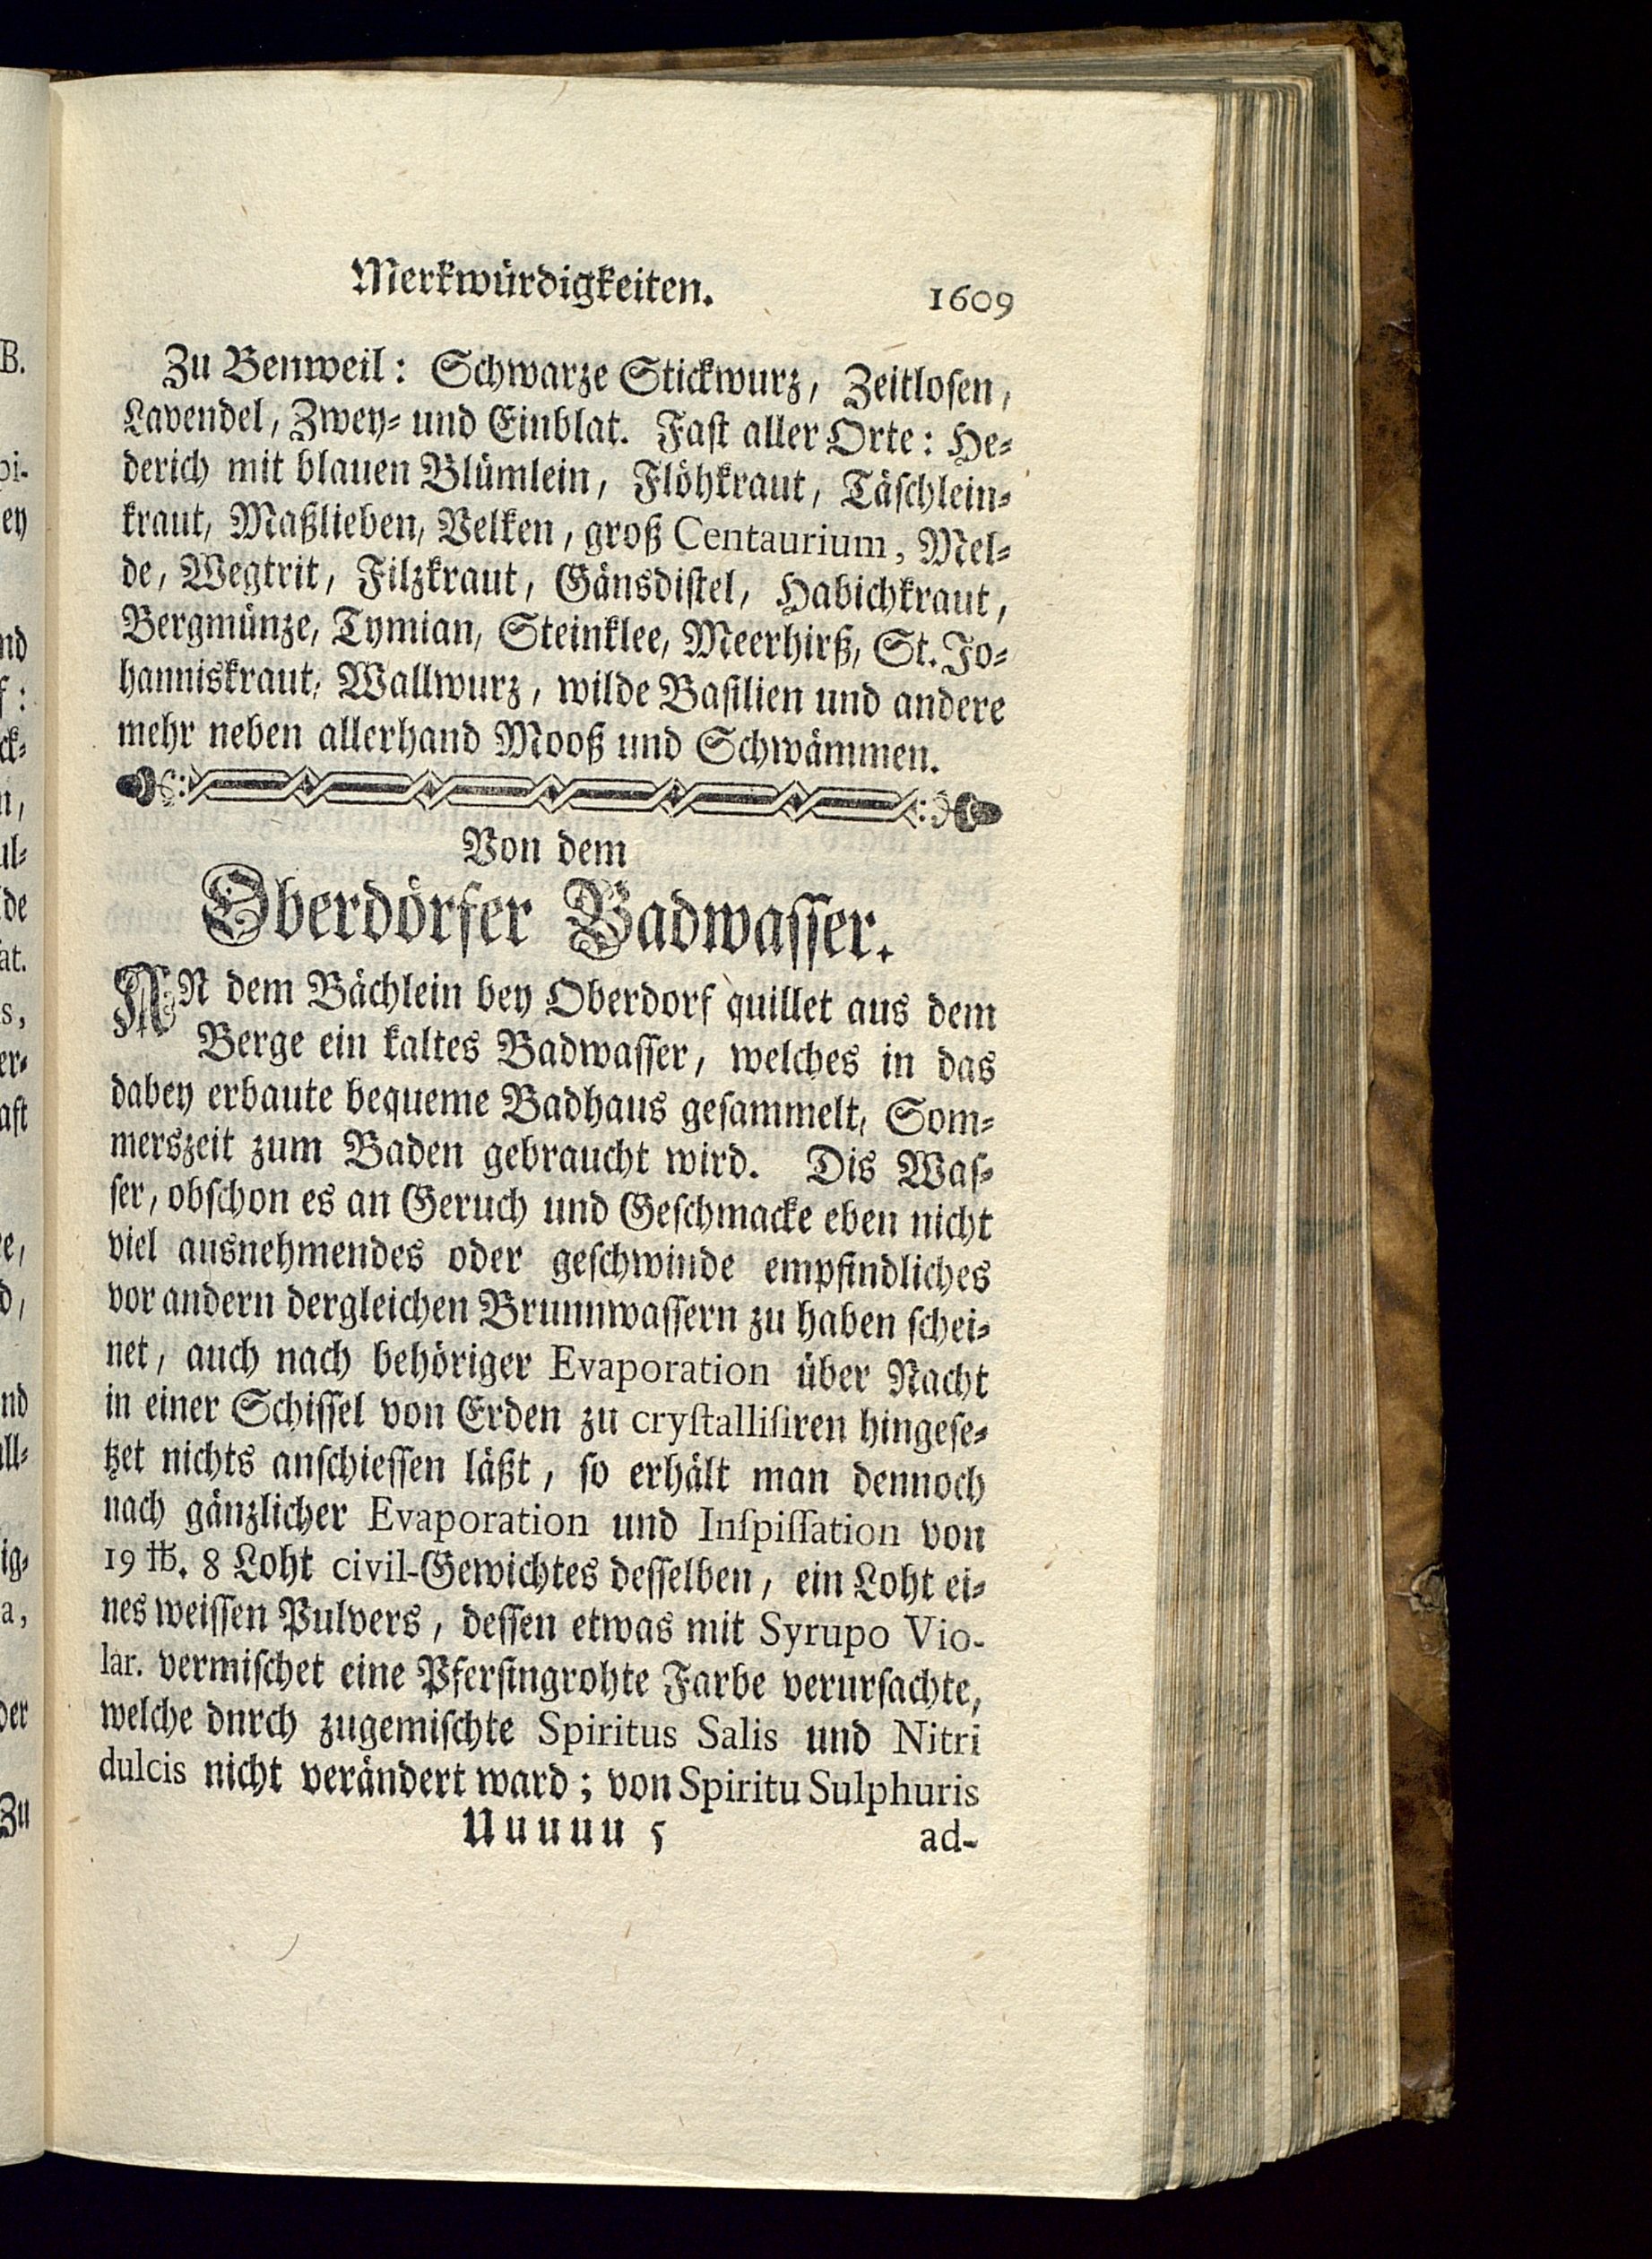 Merkwürdigkeiten. 1609
Zu Benweil: Schwarze Stickwurz, Zeitlosen,
Lavendel, Zwey- und Einblat. Fast aller Orte: He-
derich mit blauen Blümlein, Flöhkraut, Täschlein-
kraut, Maßlieben, Velken, groß Centaurium, Mel-
de, Wegtrit, Filzkraut, Gänsdistel, Habichkraut,
Bergmünze, Tymian, Steinklee, Meerhirß, St. Jo-
hanniskraut, Wallwurz, wilde Basilien und andere
mehr neben allerhand Mooß und Schwämmen.
Von dem
Oberdörfer Badwasser.
AN dem Bächlein bey Oberdorf quillet aus dem
Berge ein kaltes Badwasser, welches in das
dabey erbaute bequeme Badhaus gesammelt, Som-
merszeit zum Baden gebraucht wird. Dis Was-
ser, obschon es an Geruch und Geschmacke eben nicht
viel ausnehmendes oder geschwinde empfindliches
vor andern dergleichen Brunnwassern zu haben schei-
net, auch nach behöriger Evaporation über Nacht
in einer Schissel von Erden zu crystallisiren hingese-
tzet nichts anschiessen läßt, so erhält man dennoch
nach gänzlicher Evaporation und Inspissation von
19 ℔. 8 Loht civil-Gewichtes desselben, ein Loht ei-
nes weissen Pulvers, dessen etwas mit Syrupo Vio-
lar. vermischet eine Pfersingrohte Farbe verursachte,
welche dnrch zugemischte Spiritus Salis und Nitri
dulcis nicht verändert ward; von Spiritu Sulphuris
Uuuuu 5 ad-